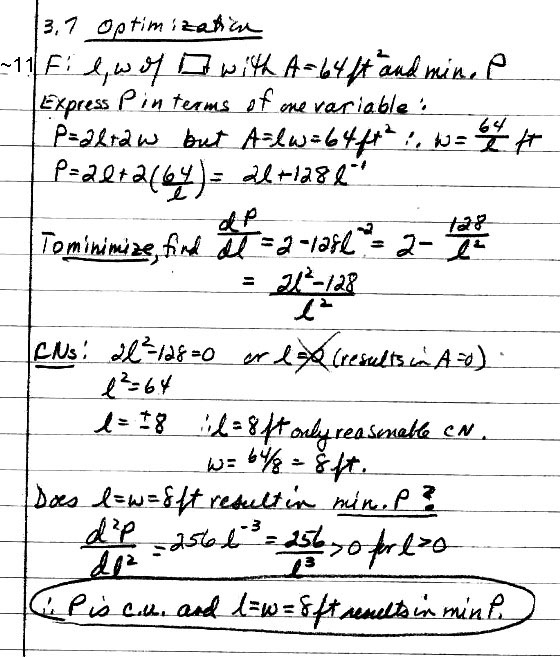 3.7 Optimization
~11 F: l, w of ▭ with A=64 ft² and min. P
Express P in terms of one variable:
P=2l+2w but A=lw=64ft² ∴ w= 64/l ft
P=2l+2(64/l)= 2l+128l⁻¹
To minimize, find dP/dl = 2-128l⁻² = 2- 128/l²
= (2l²-128)/l²
CNs: 2l²-128=0 or l=0 (results in A=0)
l²=64
l= ±8 ∴ l=8ft only reasonable CN.
w= 64/8 = 8 ft.
Does l=w=8ft result in min. P?
d²P/dl² = 256 l⁻³ = 256/l³ >0 for l>0
∴ P is c.u. and l=w=8ft results in min P.